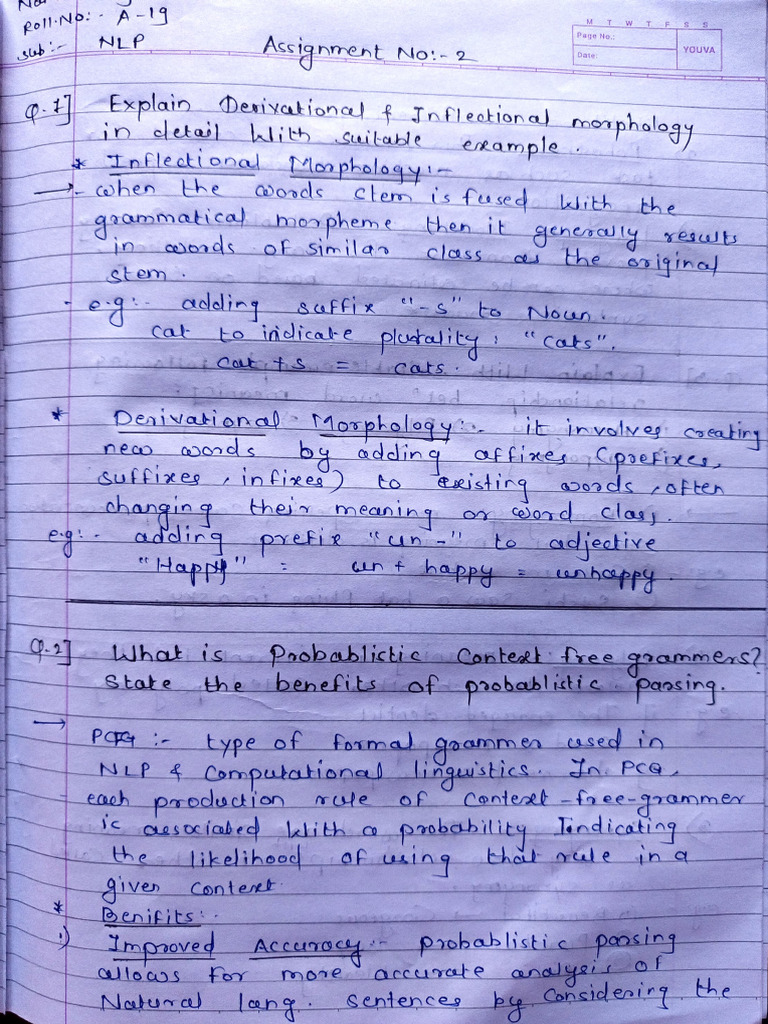 Roll.No:- A-19
M T W T F S S
Page No.:
Date:
YOUVA
Sub:- NLP
Assignment No:- 2
Q.1] Explain Derivational & Inflectional morphology
in detail with suitable example.
* Inflectional Morphology:-
→ - When the words stem is fused with the
grammatical morpheme then it generally results
in words of similar class as the original
stem.
- e.g:- adding suffix "-s" to Noun.
cat to indicate plurality: "cats".
cat + s = cats.
* Derivational Morphology:- it involves creating
new words by adding affixes (prefixes,
suffixes, infixes) to existing words, often
changing their meaning or word class.
e.g:- adding prefix "un-" to adjective
"Happy" = un + happy = unhappy.
Q.2] What is Probablistic Context free grammers?
State the benefits of probablistic parsing.
→ PCFG :- type of formal grammer used in
NLP & Computational linguistics. In PCG,
each production rule of context-free-grammer
is associated with a probability Indicating
the likelihood of using that rule in a
given context.
* Benifits:-
1) Improved Accuracy:- probablistic parsing
allows for more accurate analysis of
Natural lang. sentences by considering the